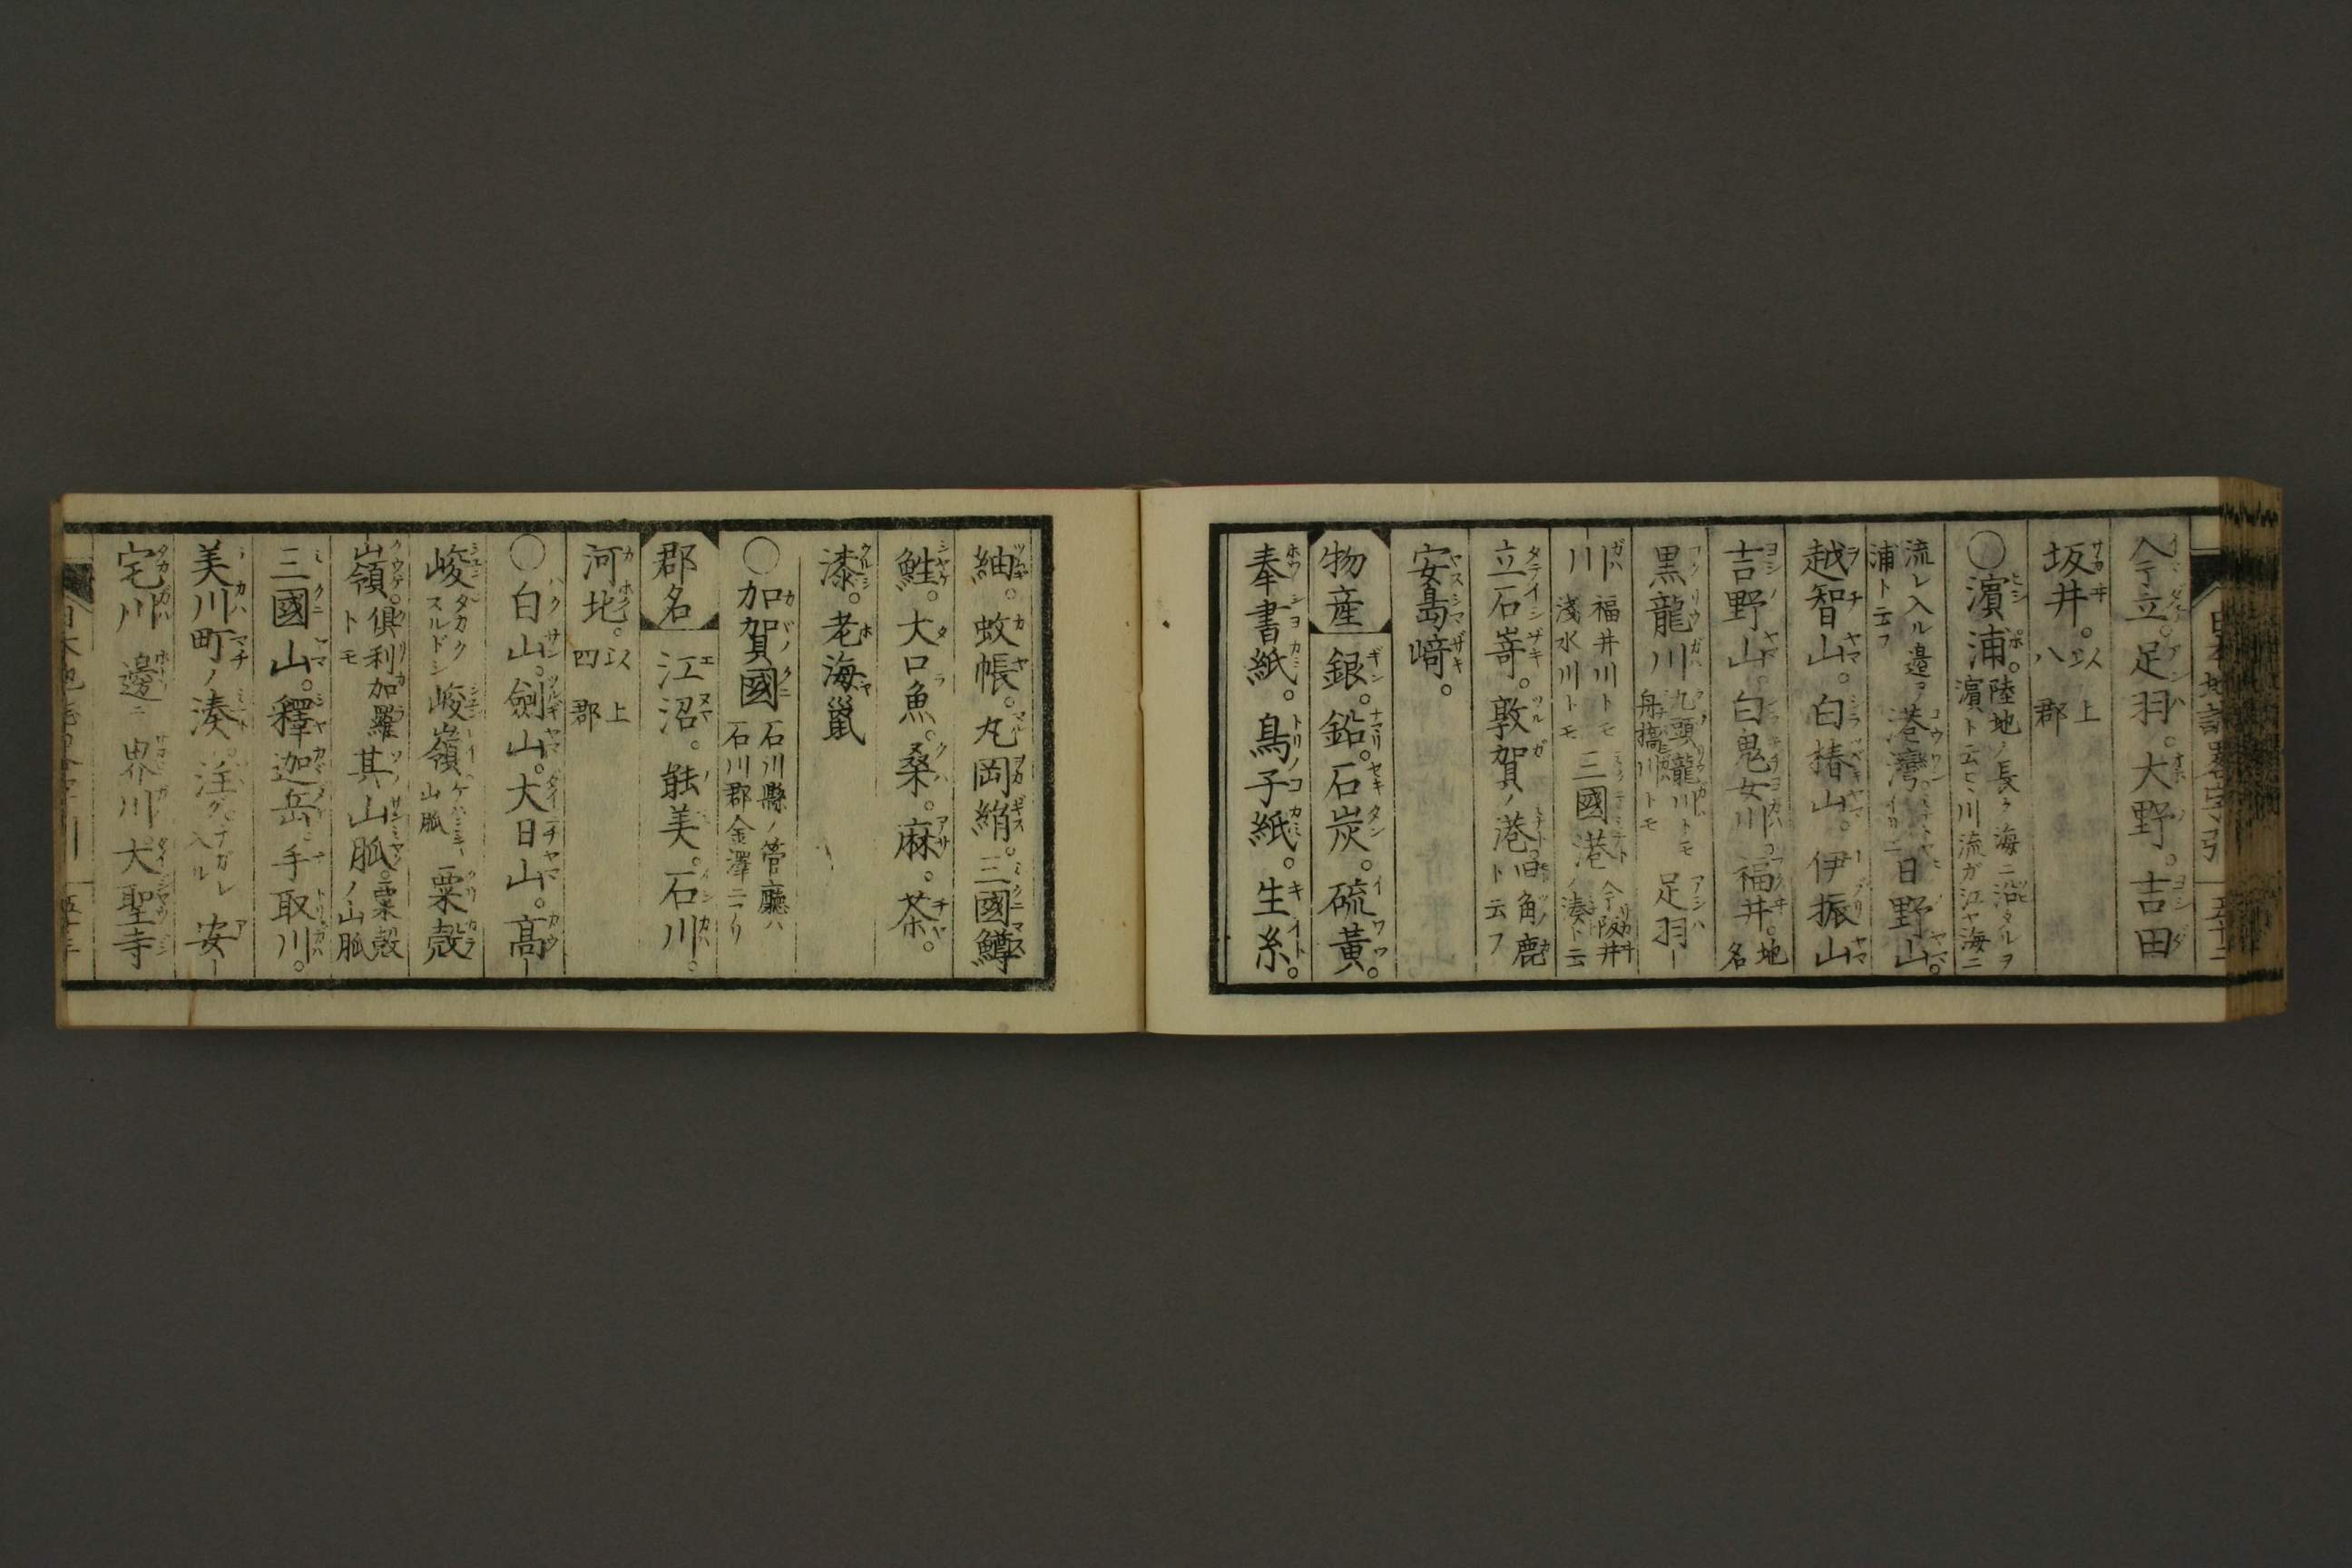 今立。足羽。大野。吉田
坂井。以上八郡
○濱浦。陸地ノ長ク海ニ沿タルヲ濱ト云ヒ川流ガ江ヤ海ニ
流レ入ル邊ヲ浦ト云フ 港灣。日野山。
越智山。白椿山。伊振山
吉野山。白鬼女川。福井。地名
黒龍川 九頭龍川トモ舟橋川トモ 足羽
川 福井川トモ淺水川トモ 三國港 今阪井ノ湊ト云
立石嵜。敦賀ノ港。旧角鹿ト云フ
安島﨑。
物産 銀。鉛。石炭。硫黃。
奉書紙。鳥子紙。生糸。
紬。蚊帳。丸岡絹。三國鱒
鮭。大口魚。桑。麻。茶。
漆。老海鼠
○加賀國 石川縣ノ管廳ハ石川郡金澤ニアリ
郡名 江沼。能美。石川。
河北。以上四郡
○白山。劍山。大日山。高
峻 タカクスルドシ 峻嶺 山脈 栗殻
嶺。倶利加羅トモ 其山脈。栗殻ノ山脈
三國山。釋迦岳。手取川。
美川町ノ湊。注グ。ナガレ入ル 安
宅川 邊ニ 界川 大聖寺